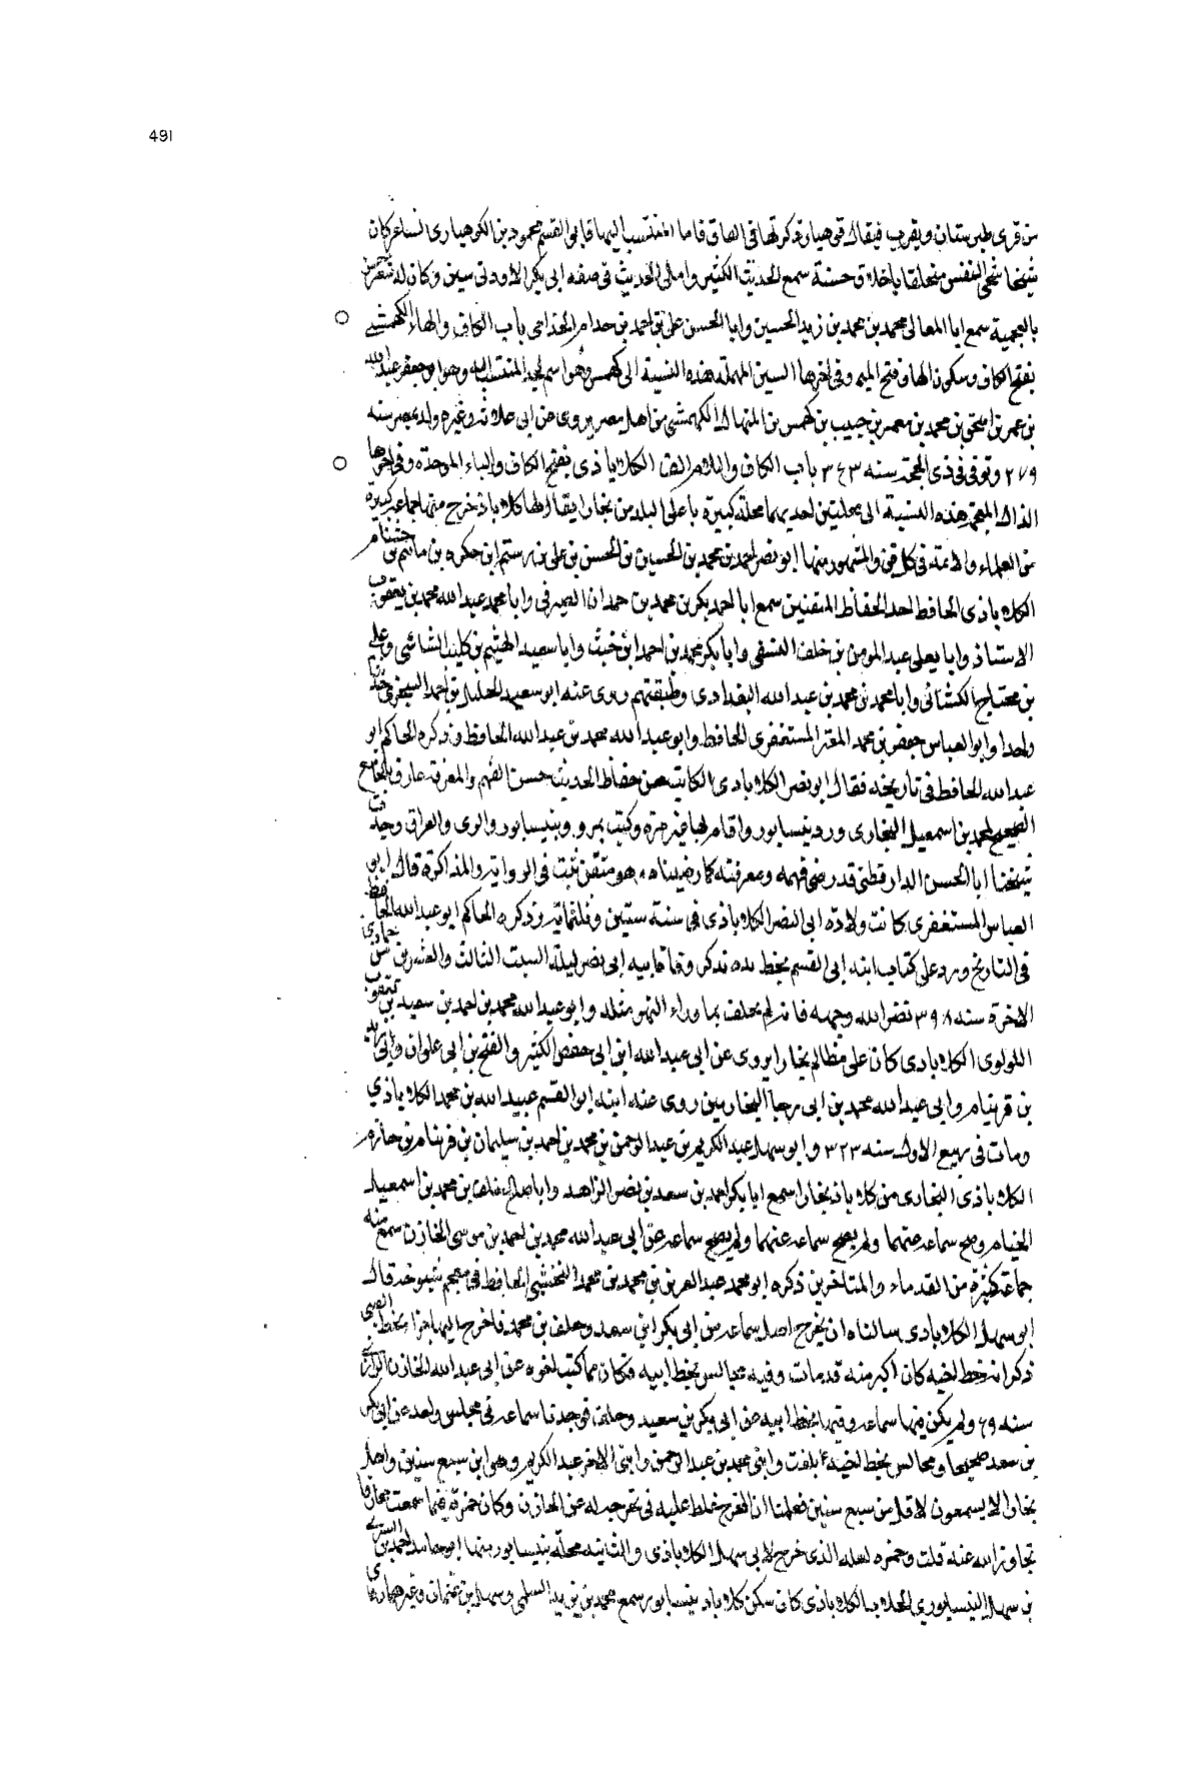 491
من قرى طبرستان ويقرب فيقال قوهيار وذكرتها في القاف فاما المنتسب اليها فابي القسم محمود بن الكوهياري نسا عركان
شيخا سخى النفس متخلقا باخلاق حسنة سمع الحديث الكثير واملى الحديث في صفه ابي بكر الاودنى سين وكان له شعر حسن
بالعجمية سمع ابا المعالى محمد بن محمد بن زيد الحسين وابا الحسن على بن احمد بن خدام الخدامى باب الكاف والهاء الكهمسى
بفتح الكاف وسكون الها وفتح الميم وفى اخرها السين المهملة هذه النسبة الى كهمس وهو اسم لجد المنتسب اليه وهو ابو جعفر عبد الله
بن عمر بن اسحق بن محمد بن معمر بن حبيب بن كهمس بن المنهال الكهمسى من اهل مصر يروى عن ابى علاثة وغيره ولد بمصر سنه
٢٧٩ وتوفى فى ذى الحجة سنه ٣٤٣ باب الكاف واللام الف الكلاباذى بفتح الكاف والباء الموحدة وفى اخرها
الذال المعجمة هذه النسبة الى محلتين احديهما محلة كبيرة باعلى البلد من بخارا يقال لها كلاباذ خرج منها جماعة كبيرة
من العلماء والائمة فى كل فن والمشهور منها ابو نصر احمد بن محمد بن الحسين بن الحسن بن على بن رستم ابن حكره بن ماتم بن
الكلاباذى الحافظ احد الحفاظ المتقنين سمع ابا احمد بكر بن محمد بن حمدان الصيرفى وابا محمد عبد الله محمد بن يعقوب
الاستاذ وابا يعلى عبد المومن بن خلف النسفى وابا بكر محمد بن احمد ابن خنب وابا سعيد الهيثم بن كليب الشاشى وعلى
بن محتاج الكشانى وابا محمد بن محمد بن عبد الله البغدادى وطبقتهم روى عنه ابو سعيد الخليل بن احمد السجزى
واحدا وابو العباس جعفر بن محمد المعتز المستغفرى الحافظ وابو عبد الله محمد بن عبد الله الحافظ وذكره الحاكم ابو
عبد الله الحافظ فى تاريخه فقال ابو نصر الكلابادى الكاتب من حفاظ الحديث حسن الفهم والمعرفة عارف بالجامع
الصحيح لمحمد بن اسمعيل البخارى ورد نيسابور واقام بها غير مرة وكتب بمرو وبنيسابور والرى والعراق وجدت
شيخنا ابا الحسن الدارقطنى قد رضى فهمه ومعرفته كما رضيناه وهو متقن ثبت فى الرواية والمذاكرة قال ابو
العباس المستغفرى كانت ولادة ابى النصر الكلاباذى فى سنة ستين وثلثمائة وذكره الحاكم ابو عبد الله الحافظ
فى التاريخ ورد على كتاب ابنه ابى القسم بخط يده يذكر وفاة ابيه ابى نصر ليلة السبت الثالث والعشرين من جمادى
الاخرة سنه ٣٩٨ نضر الله وجهه فانه لم يخلف بما وراء النهر مثله وابو عبد الله محمد بن احمد بن سعيد بن يعقوب
اللولوى الكلابادى كان على مظالم بخارا يروى عن ابى عبد الله ابن ابى حفص الكثير والفتح بن ابى علوان وابى
بن قريتام وابى عبد الله محمد بن ابى رجا البخاريين روى عنه ابنه ابو القسم عبيد الله بن محمد الكلاباذي
ومات فى ربيع الاول سنه ٣٢٣ وابو سهل عبد الكريم بن عبد الرحمن بن محمد بن احمد بن سليمان بن فرينام بن حازم
الكلاباذى البخارى من كلاباذ بخارا سمع ابا بكر احمد بن سعد بن نصر الزاهد وابا صالح خلف بن محمد بن اسمعيل
الخيام وصح سماعه عنهما ولم يصح سماعه عنهما ولم يصح سماعه عن ابى عبد الله محمد بن احمد بن موسى الخازن سمع منه
جماعة كثيرة من القدماء والمتاخرين ذكره ابو محمد عبد العزيز بن محمد بن محمد النخشبى الحافظ فى معجم شيوخه قال
ابو سهل الكلابادى سالناه ان يخرج اصل سماعه من ابى بكر ابن سعد وخلف بن محمد فاخرج الينا جزا بخط الصبى
ذكر انه خط اخيه كان اكبر منه قد مات وفيه مجالس بخط ابيه فكان مما كتب اخوه عن ابى عبد الله الخازن الرازى
سنه ٤٩ ولم يكن فيها سماعه وفيما بخط ابيه عن ابى بكر بن سعيد وخلف فوجدنا سماعه فى مجلس واحد عن ابى بكر
بن سعد صحيحا ومجالس بخط اخيه بلغت وابنى محمد بن عبد الرحمن وابنى الاخر عبد الكريم وهو ابن سبع سنين واهل
بخارا لا يسمعون لاقل من سبع سنين فعلمنا ان المخرج غلط عليه فى تخريجه له عن الخازن وكان حمزة فيما سمعت مجازفا
تجاوز الله عنه قلت وحمزه لعله الذى خرج لابى سهل الكلاباذى والثانية محلة بنيسابور منها ابو حامد احمد بن السرى
بن سهل النيسابوري الجلاب الكلاباذى كان سكن كلاباد نيسابور سمع محمد بن يزيد السلمى وسهل بن عثمان وغيرهما